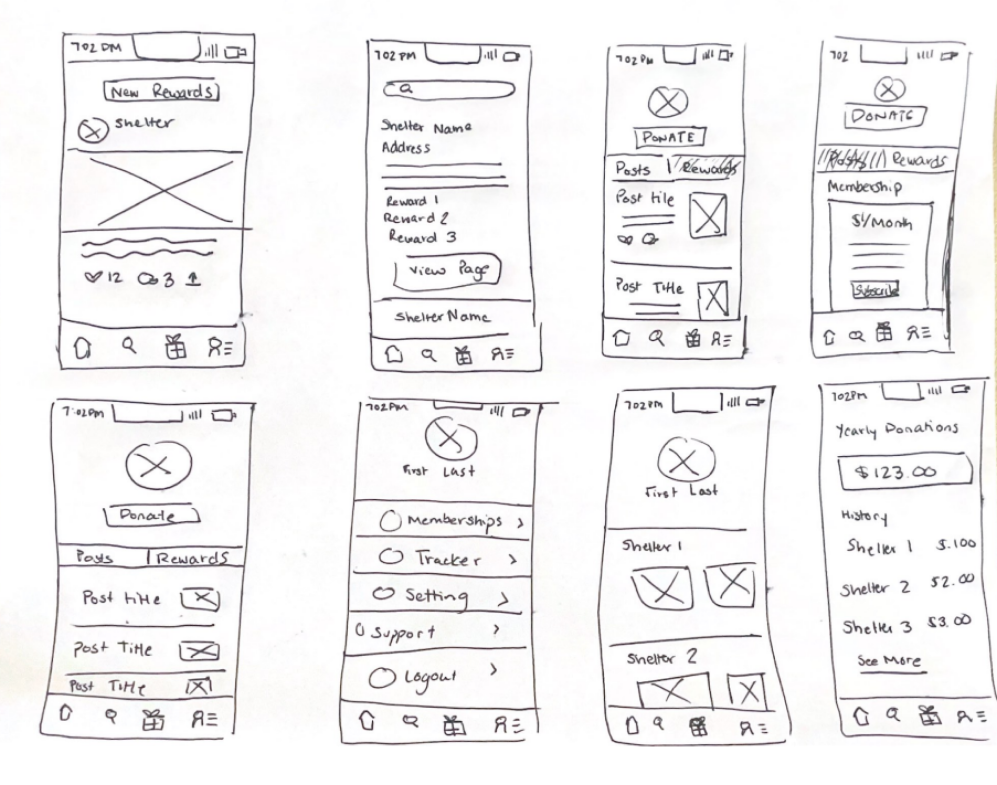 7:02 PM
New Rewards
Shelter
12 3
7:02 PM
Shelter Name
Address
Reward 1
Reward 2
Reward 3
View Page
Shelter Name
7:02 PM
DONATE
Posts Rewards
Post title
Post Title
7:02
DONATE
Posts Rewards
Membership
$1/Month
Subscribe
7:02 PM
Donate
Posts Rewards
Post title
Post Title
Post Title
7:02 PM
First Last
Memberships >
Tracker >
Setting >
Support >
Logout >
7:02 PM
First Last
Shelter 1
Shelter 2
7:02 PM
Yearly Donations
$123.00
History
Shelter 1 $.100
Shelter 2 $2.00
Shelter 3 $3.00
See More